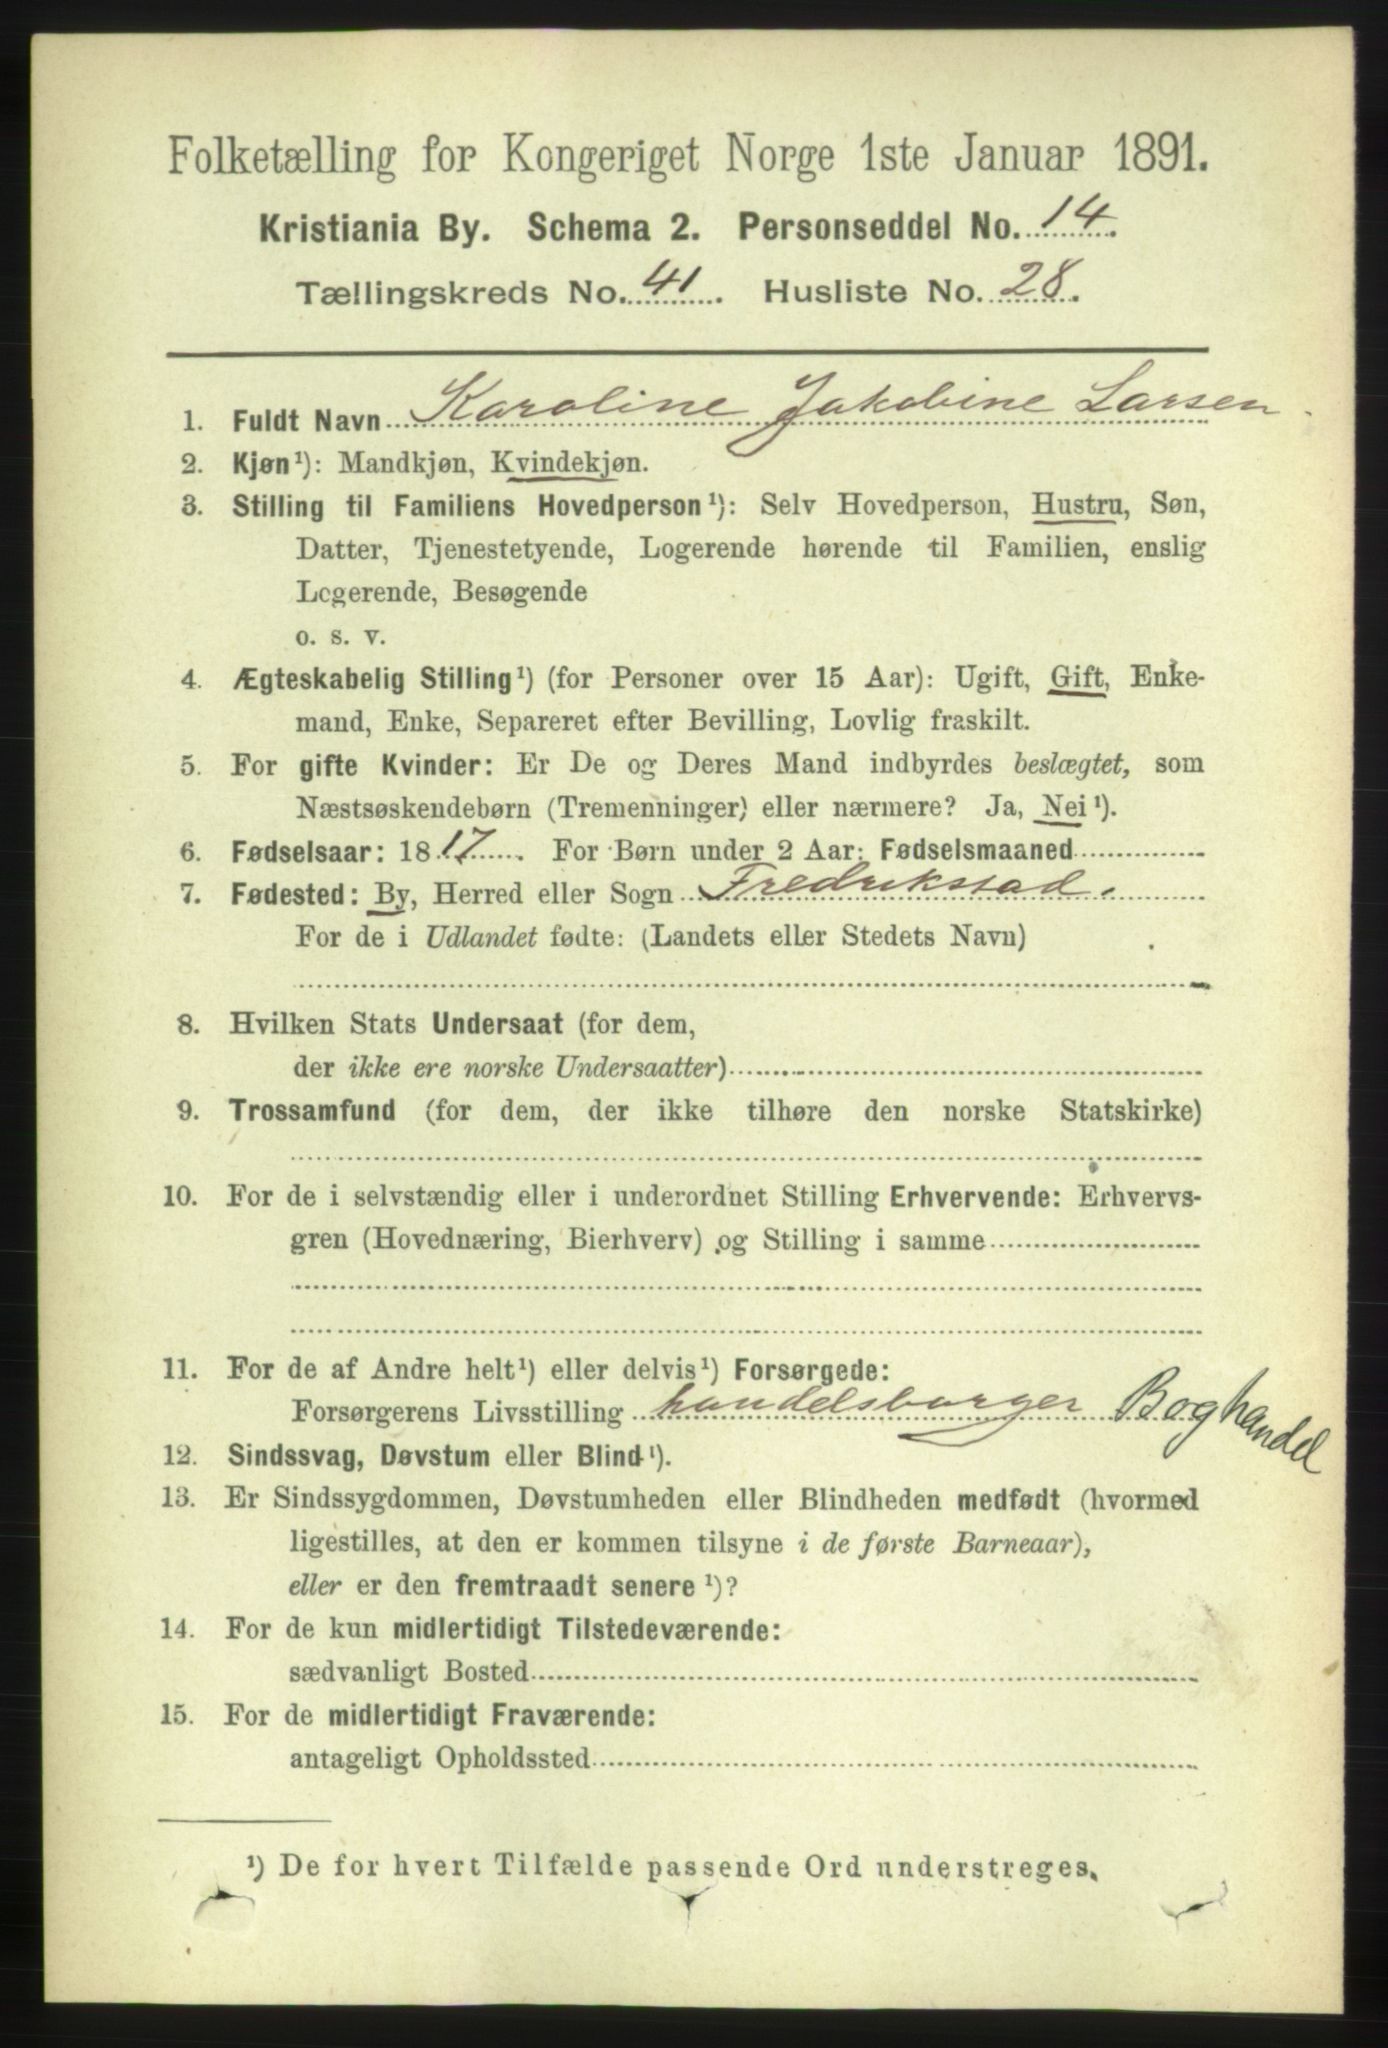 Folketælling for Kongeriget Norge 1ste Januar 1891.
Kristiania By. Schema 2. Personseddel No. 14.
Tællingskreds No. 41. Husliste No. 28.
1. Fuldt Navn Karoline Jakobine Larsen.
2. Kjøn¹): Mandkjøn, Kvindekjøn.
3. Stilling til Familiens Hovedperson¹): Selv Hovedperson, Hustru, Søn,
Datter, Tjenestetyende, Logerende hørende til Familien, enslig
Logerende, Besøgende
o. s. v.
4. Ægteskabelig Stilling¹) (for Personer over 15 Aar): Ugift, Gift, Enke-
mand, Enke, Separeret efter Bevilling, Lovlig fraskilt.
5. For gifte Kvinder: Er De og Deres Mand indbyrdes beslægtet, som
Næstsøskendebørn (Tremenninger) eller nærmere? Ja, Nei¹).
6. Fødselsaar: 1817. For Børn under 2 Aar: Fødselsmaaned
7. Fødested: By, Herred eller Sogn Fredrikstad.
For de i Udlandet fødte: (Landets eller Stedets Navn)
8. Hvilken Stats Undersaat (for dem,
der ikke ere norske Undersaatter)
9. Trossamfund (for dem, der ikke tilhøre den norske Statskirke)
10. For de i selvstændig eller i underordnet Stilling Erhvervende: Erhvervs-
gren (Hovednæring, Bierhverv) og Stilling i samme
11. For de af Andre helt¹) eller delvis¹) Forsørgede:
Forsørgerens Livsstilling handelsborger Boghandel
12. Sindssvag, Døvstum eller Blind¹).
13. Er Sindssygdommen, Døvstumheden eller Blindheden medfødt (hvormed
ligestilles, at den er kommen tilsyne i de første Barneaar),
eller er den fremtraadt senere¹)?
14. For de kun midlertidigt Tilstedeværende:
sædvanligt Bosted
15. For de midlertidigt Fraværende:
antageligt Opholdssted
¹) De for hvert Tilfælde passende Ord understreges.